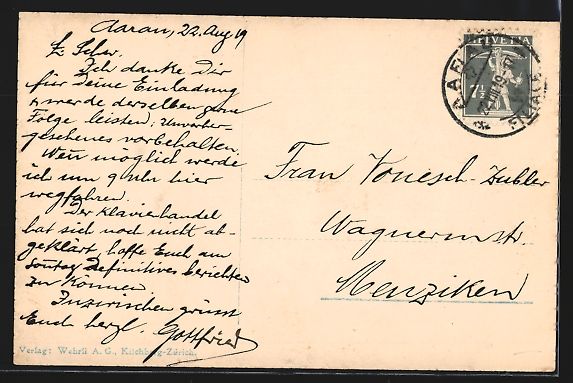 Aarau, 22. Aug 19
L. Schw.
Ich danke Dir
für Deine Einladung
& werde derselben gerne
Folge leisten; Unvorher-
gesehenes vorbehalten.
Wenn möglich werde
ich um 9 Uhr hier
wegfahren.
Der Klavierhandel
hat sich noch nicht ab-
geklärt, hoffe Euch am
Sonntag definitives berichten
zu können.
Inzwischen grüsst
Euch herzl. Gottfried
Verlag: Wehrli A. G., Kilchberg-Zürich.
HELVETIA
7½
AARAU
FILIALE
Frau Vonesch-Zubler
Menziken